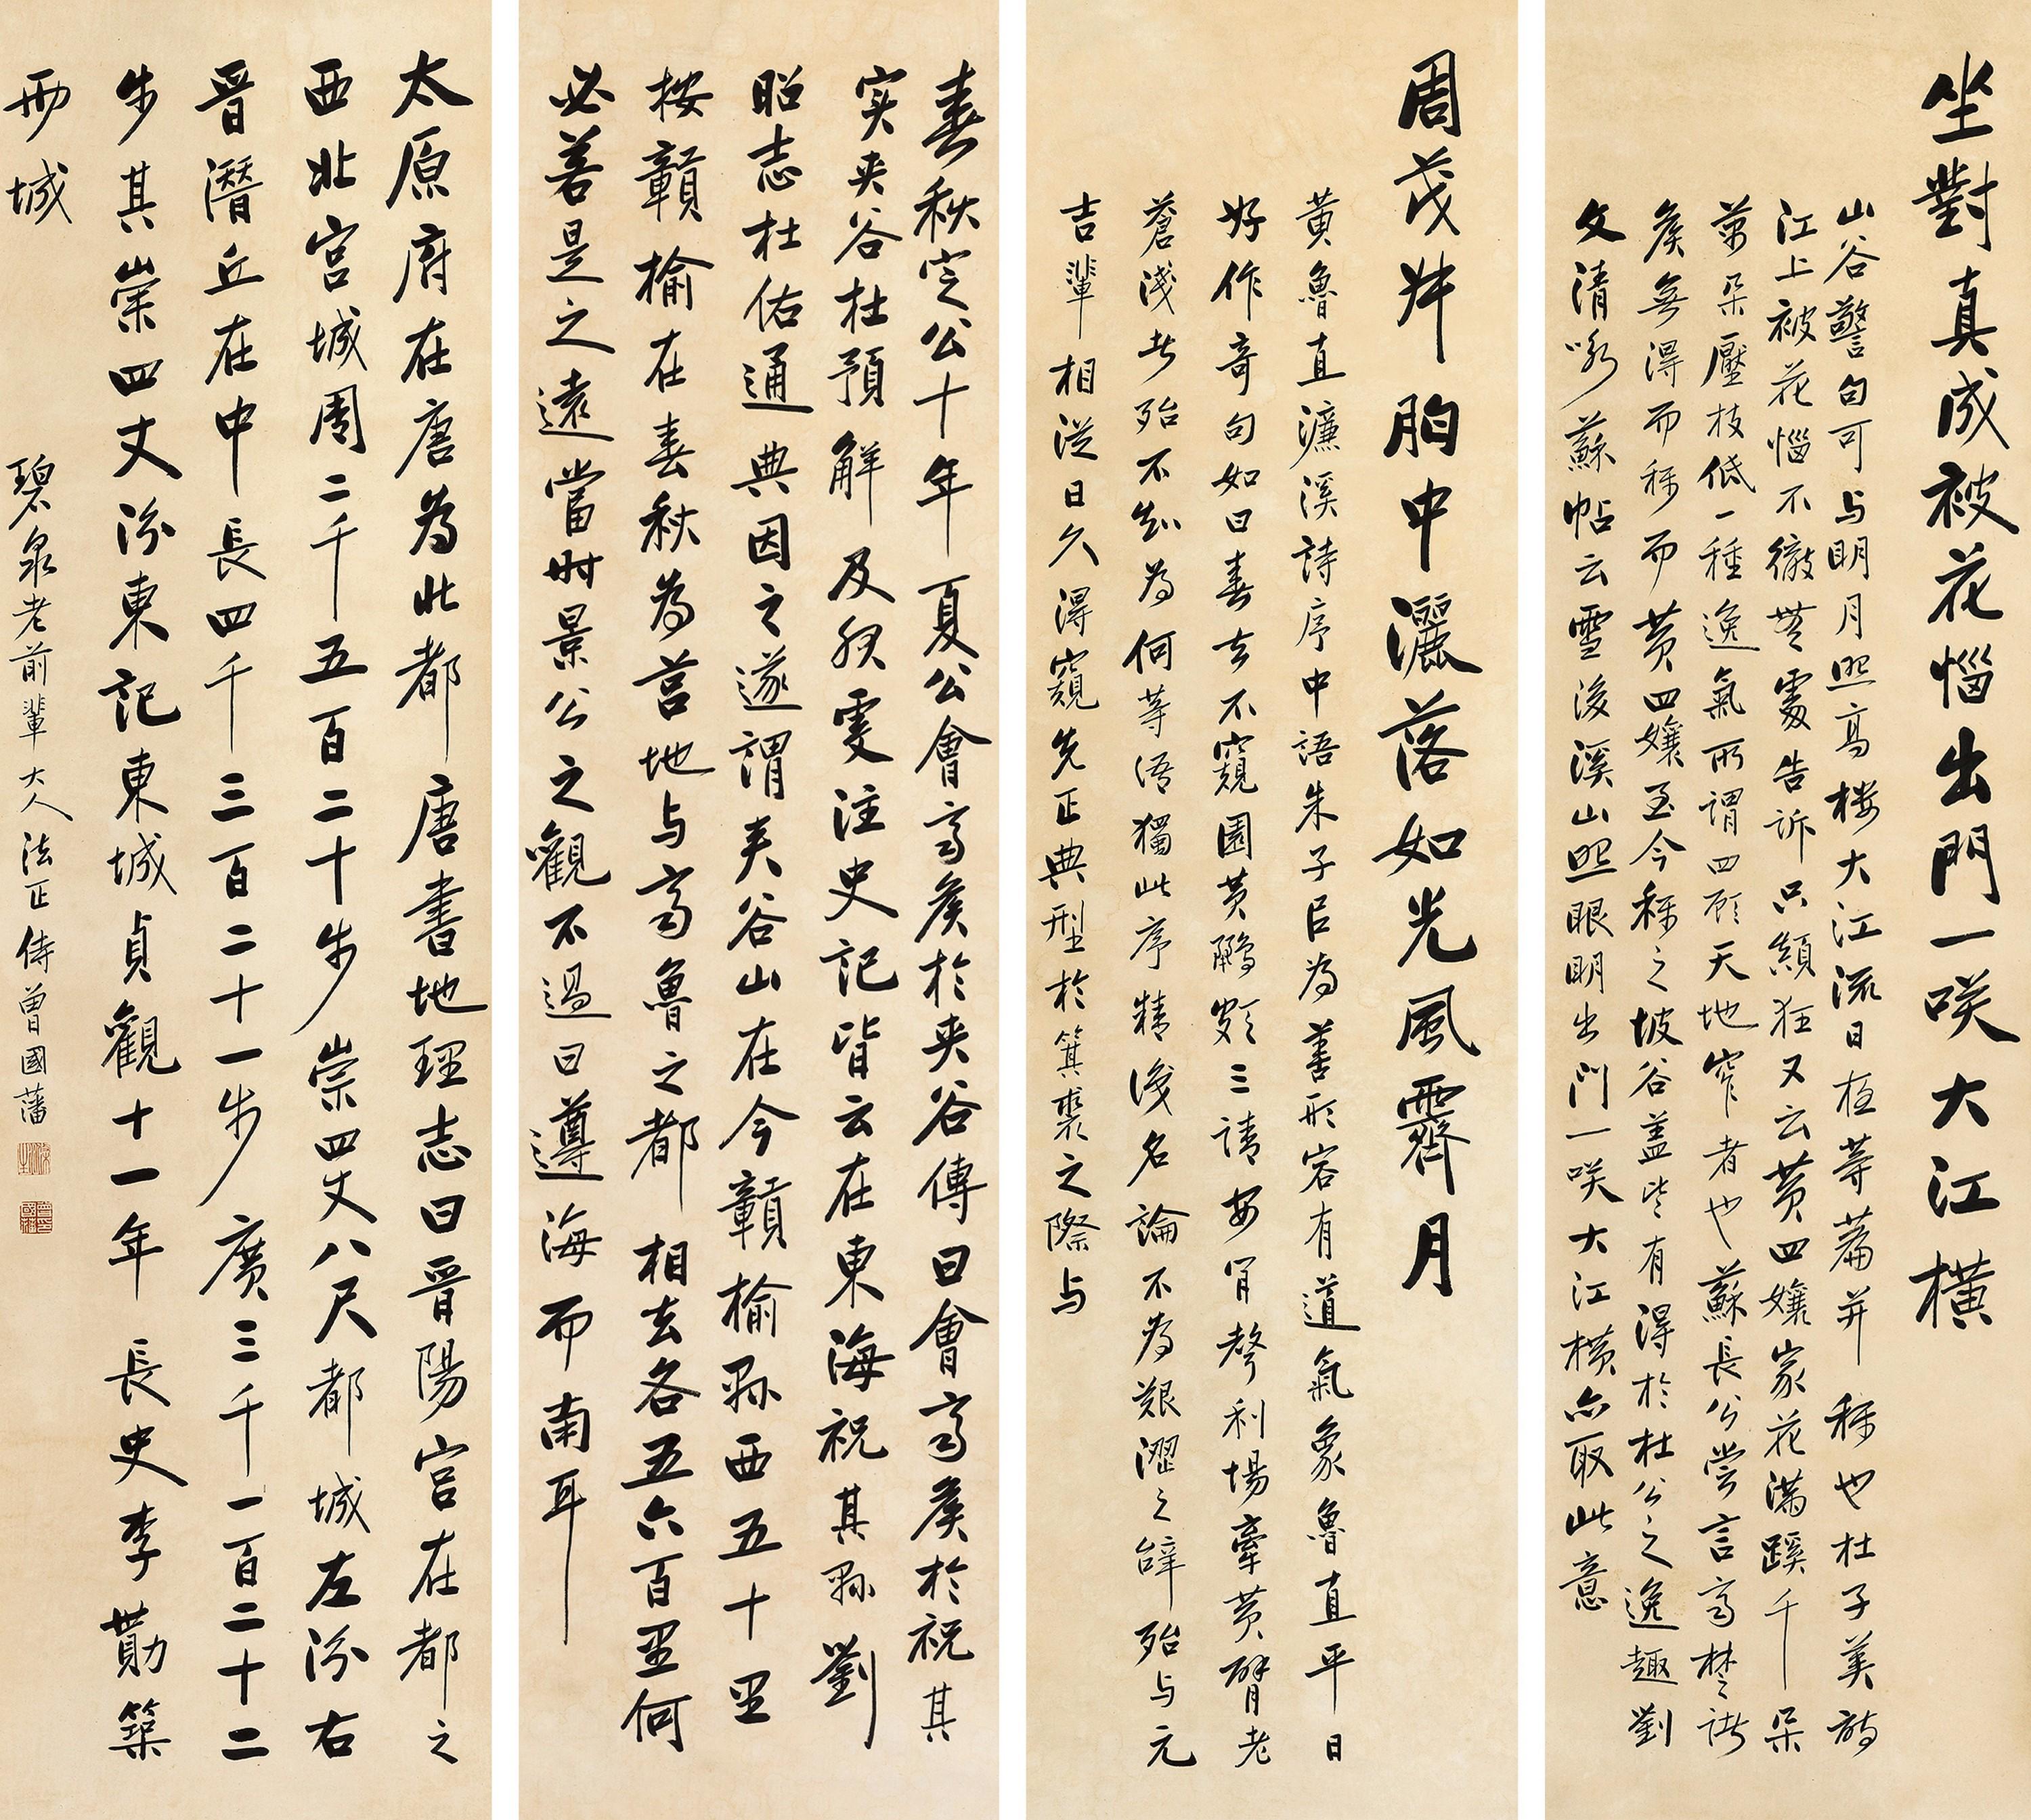 坐對真成被花惱出門一咲大江橫
山谷警句可与明月照高楼大江流日夜等篇并稱也杜子美詩
江上被花惱不徹無處告訴只顛狂又云黃四孃家花滿蹊千朵
萬朵壓枝低一種逸氣所謂四顧天地窄者也蘇長公嘗言齊楚諸
矦無得而稱而黃四孃至今稱之坡谷蓋皆有得於杜公之逸趣劉
文清臨蘇帖云雪後溪山照眼明出門一咲大江橫亦取此意
周茂叔胷中灑落如光風霽月
黃魯直濂溪詩序中語朱子㠯為善形容有道氣象魯直平日
好作奇句如曰春去不窺園黃鸝頗三請安肎聲利場牽黃臂老
蒼淺者殆不知為何等語獨此序精深名論不為艱澀之辭殆与元
吉輩相從日久得窺先正典型於箕裘之際与
春秋定公十年夏公會齊矦於夾谷傳曰會齊矦於祝其
实夾谷杜預解及服虔注史記皆云在東海祝其縣劉
昭志杜佑通典因之遂謂夾谷山在今贛榆縣西五十里
按贛榆在春秋為莒地与齊魯之都相去各五六百里何
必若是之遠當时景公之觀不過曰遵海而南耳
太原府在唐為北都唐書地理志曰晋陽宫在都之
西北宫城周二千五百二十步崇四丈八尺都城左汾右
晋潛丘在中長四千三百二十一步廣三千一百二十二
步其崇四丈汾東記東城貞觀十一年長史李勣築
两城
碧泉老前輩大人法正侍曾國藩